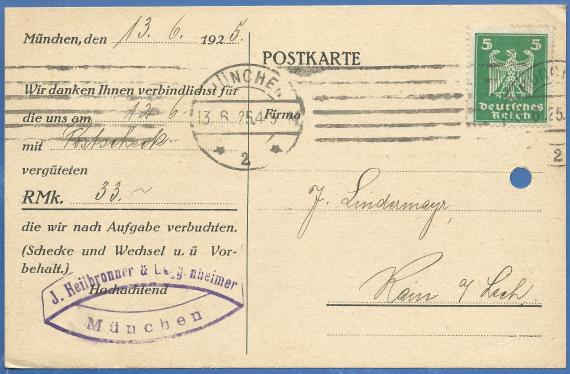 München, den 13. 6. 1925.
Wir danken Ihnen verbindlichst für
die uns am 12 6.
mit Postscheck
vergüteten
RMk. 33.~
die wir nach Aufgabe verbuchten.
(Schecke und Wechsel u. ü Vor-
behalt.)
Hochachtend
J. Heilbronner &
München
POSTKARTE
MÜNCHEN
13. 6. 25
2
5 5
Deutsches
Reich
2
Firma
J. Lindermayr,
Rain a/Lech.